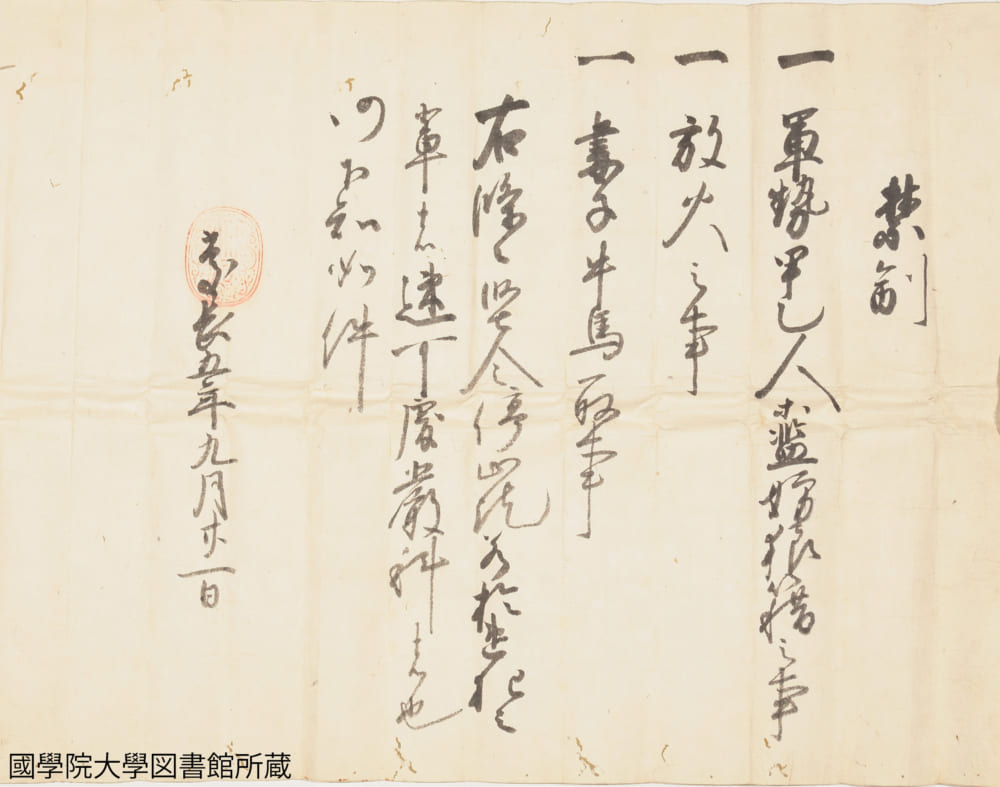 禁制
一 軍勢甲乙人等濫妨狼藉之事
一 放火之事
一 妻子牛馬取事
右条々堅令停止訖若於違犯之
輩者速可處厳科者也
仍下知如件
慶長五年九月廿一日
國學院大學図書館所蔵